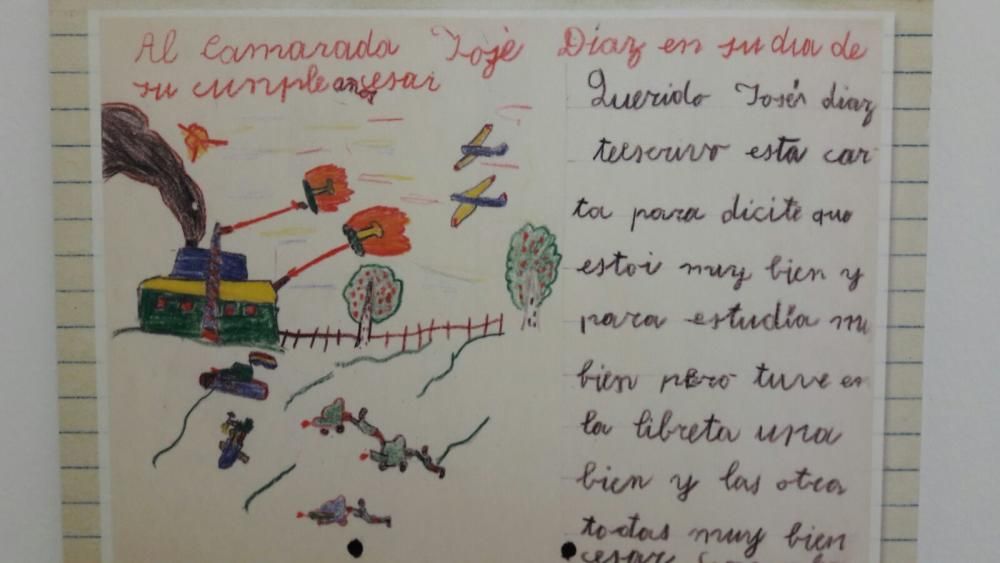 Al Camarada Josè Diaz en su dia de
su cumpleanos cesar
Querido José diaz
teescrivo esta car
ta para dicite que
estoi muy bien y
para estudia mu
bien pero tuve en
la libreta una
bien y las otra
todas muy bien
cesar